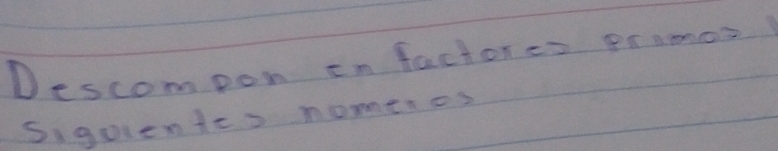 Descompon en factores primos
Siguientes nomeros